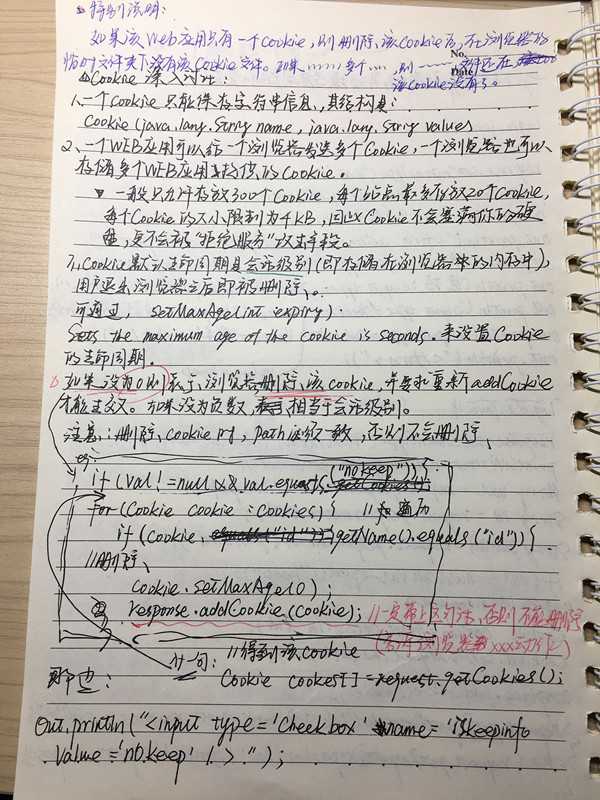 特别说明:
如果该Web应用只有一个Cookie,则删除该Cookie后,在浏览器的
临时文件夹下没有该Cookie文件。如果……多个…,则——文件还在
No.
Date
该Cookie没有了。
Cookie深入讨论:
1、一个Cookie只能保存字符串信息,其结构是:
Cookie(java.lang.String name, java.lang.String values
2、一个WEB应用可以给一个浏览器发送多个Cookie,一个浏览器也可以
存储多个WEB应用提供的Cookie。
一般只允许存放300个Cookie,每个站点最多存放20个Cookie,
每个Cookie的大小限制为4KB,因此Cookie不会塞满你的硬
盘,更不会被"拒绝服务"攻击手段。
Cookie默认生命周期是会话级别(即存储在浏览器的内存中),
用户退出浏览器之后即被删除。
可通过, setMaxAge(int expiry)
Sets the maximum age of the cookie is seconds. 来设置Cookie
的生命周期.
如果设为0则表示浏览器删除该cookie,并要求重新addCookie
才能生效。如果设为负数,相当于会话级别。
注意:删除cookie时,path必须一致,否则不会删除
eg:
if (val != null && val.equals("nokeep")) {
for (Cookie cookie : Cookies) { //如遍历
if (cookie.getName().equals("id")) {
//删除
cookie.setMaxAge(0);
response.addCookie(cookie); //一定带上这句话,否则不能删除
(告诉浏览器xxx动作)
什一句: //得到该cookie
即也: Cookie cookes[] = request.getCookies();
Out.println("<input type='Checkbox' name='iskeepinfo
value='nokeep' />");